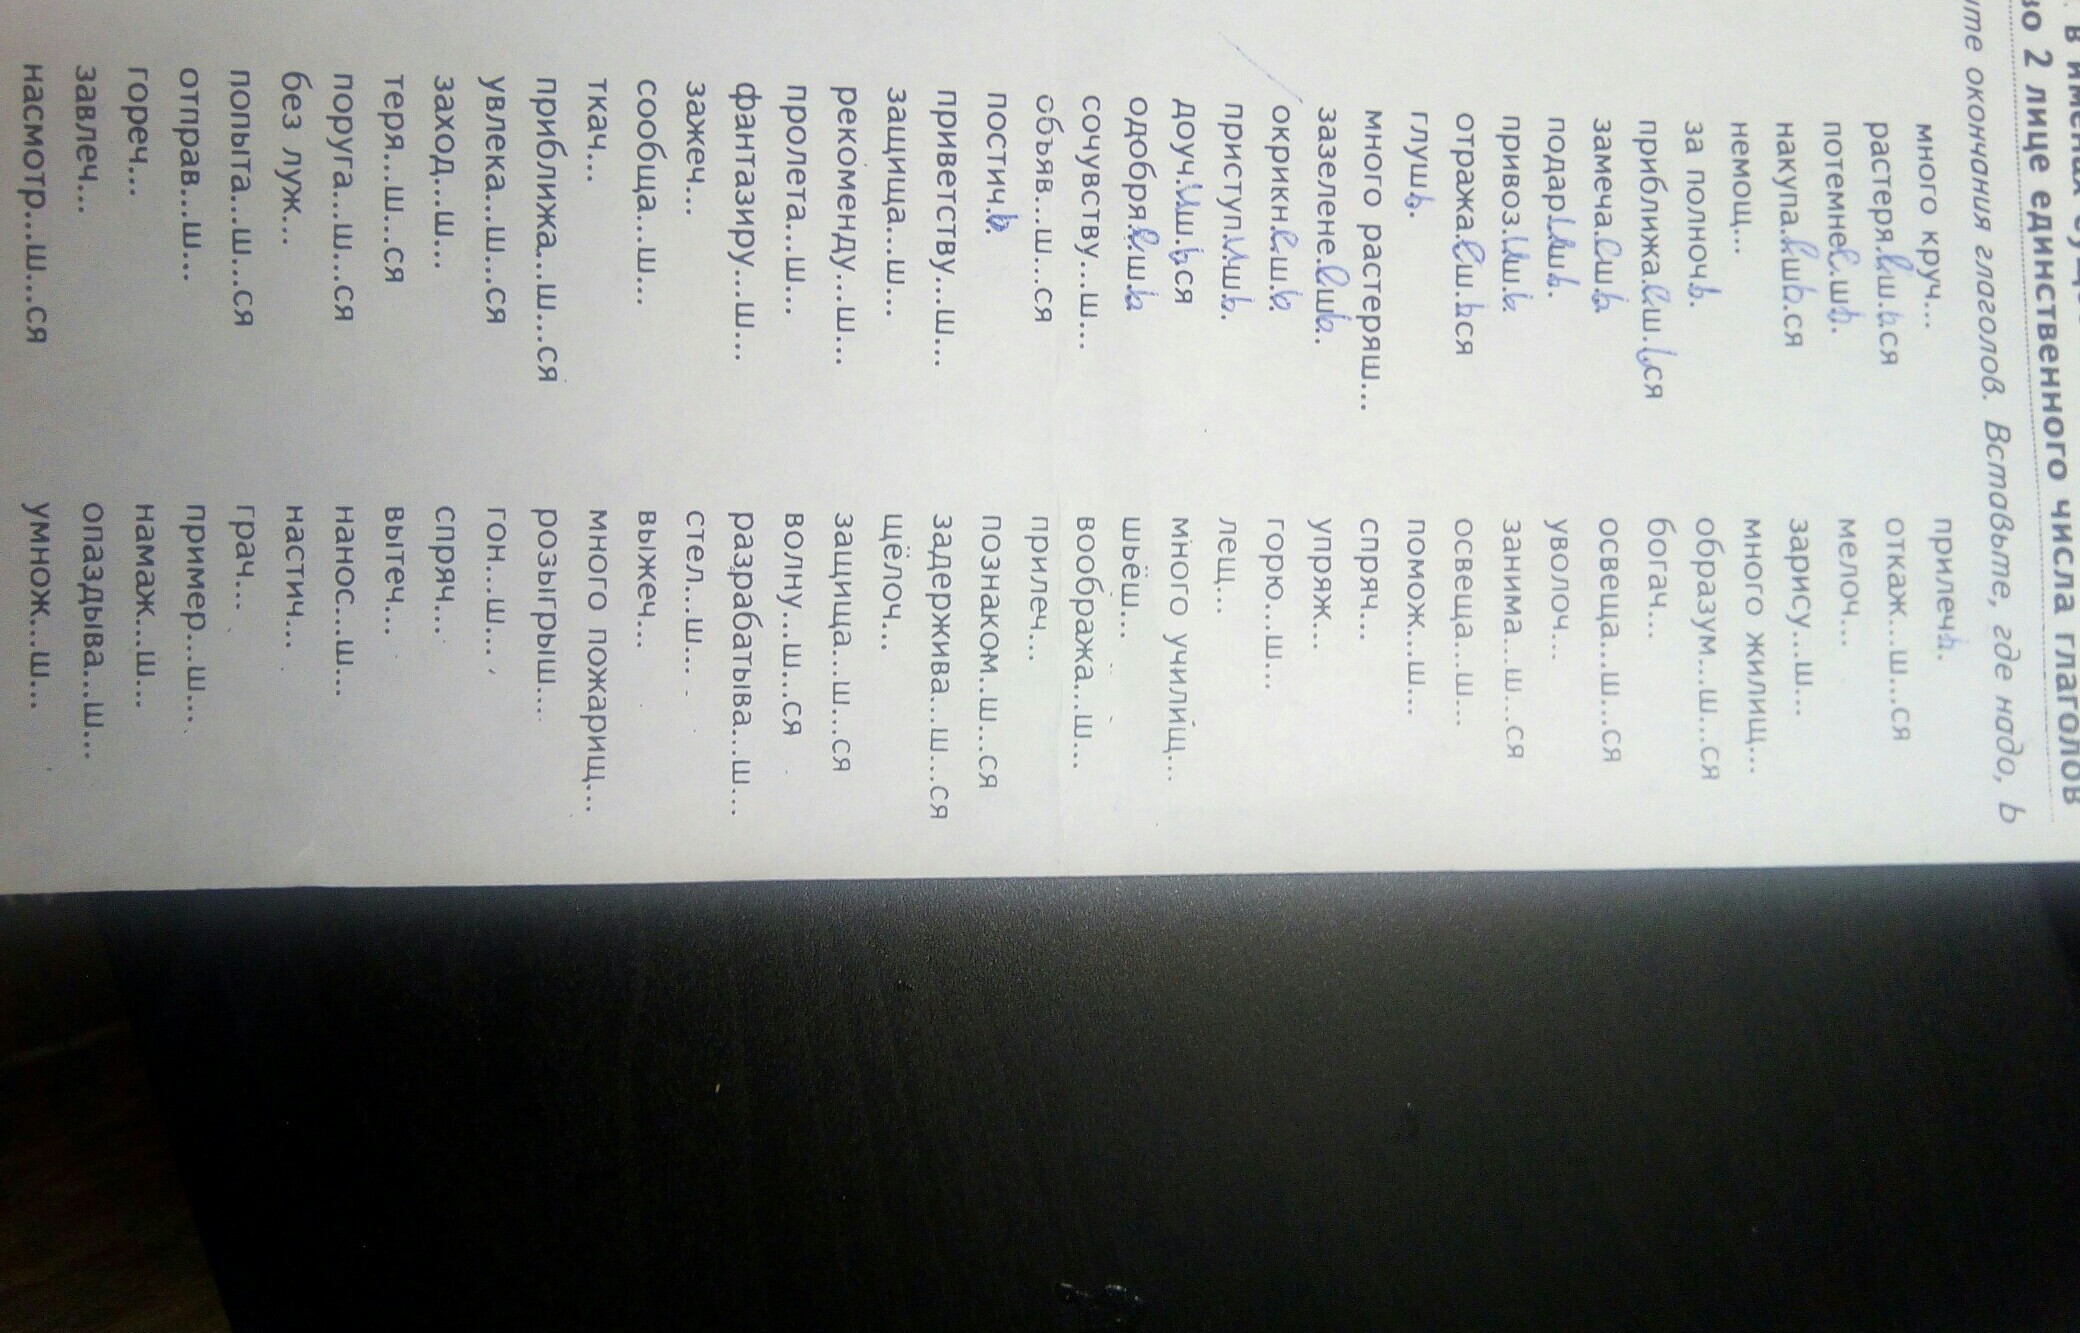 в именах
во 2 лице единственного числа глаголов
окончания глаголов. Вставьте, где надо, ь
много круч...
растеря.еш.ься
потемне.еш.ь.
накупа.ешь.ся
немощ...
за полноч.ь.
приближа.еш.ься
замеча.еш.ь
подар.иш.ь.
привоз.иш.ь
отража.еш.ься
глуш.ь.
много растеряш...
зазелене.ешь.
окрикн.еш.ь
приступ.иш.ь.
доуч.иш.ься
одобря.еш.ь
сочувству...ш...
объяв...ш...ся
постич.ь
приветству...ш...
защища...ш...
рекоменду...ш...
пролета...ш...
фантазиру...ш...
зажеч...
сообща...ш...
ткач...
приближа...ш...ся
увлека...ш...ся
заход...ш...
теря...ш...ся
поруга...ш...ся
без луж...
попыта...ш...ся
отправ...ш...
гореч...
завлеч...
насмотр...ш...ся
прилеч.ь.
откаж...ш...ся
мелоч...
зарису...ш...
много жилищ...
образум...ш...ся
богач...
освеща...ш...ся
уволоч...
занима...ш...ся
освеща...ш...
помож...ш...
спряч...
упряж...
горю...ш...
лещ...
много училищ...
шьёш...
вообража...ш...
прилеч...
познаком..ш...ся
задержива...ш...ся
щёлоч...
защища...ш...ся
волну...ш...ся
разрабатыва...ш...
стел...ш...
выжеч...
много пожарищ...
розыгрыш...
гон...ш...
спряч...
вытеч...
нанос...ш...
настич...
грач...
пример...ш...
намаж...ш...
опаздыва...ш...
умнож...ш...